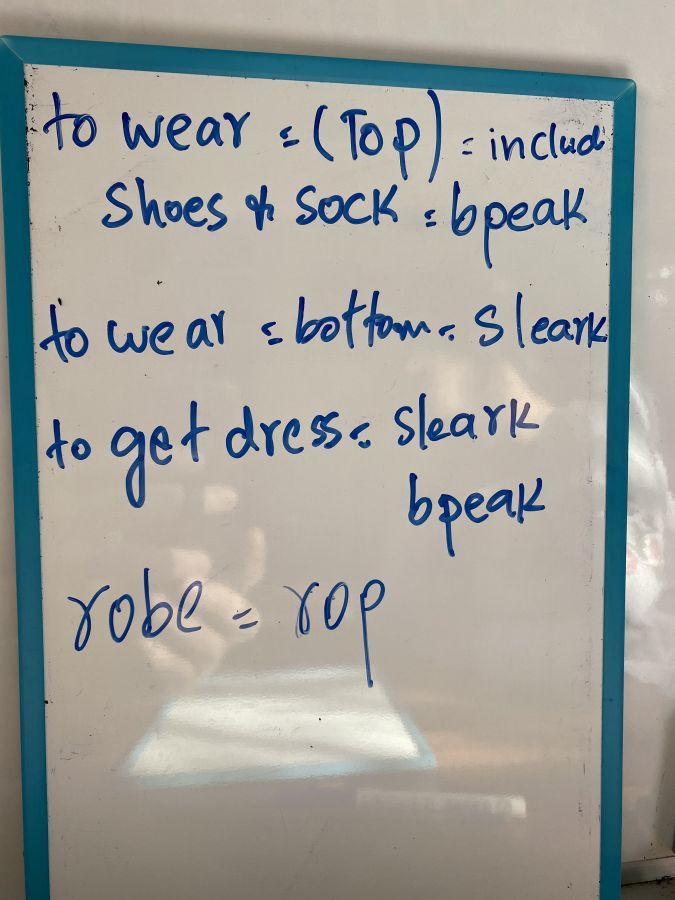 to wear = (Top) = includ
Shoes & Sock = bpeak
to wear = bottom = Sleark
to get dress = Sleark
bpeak
robe = rop